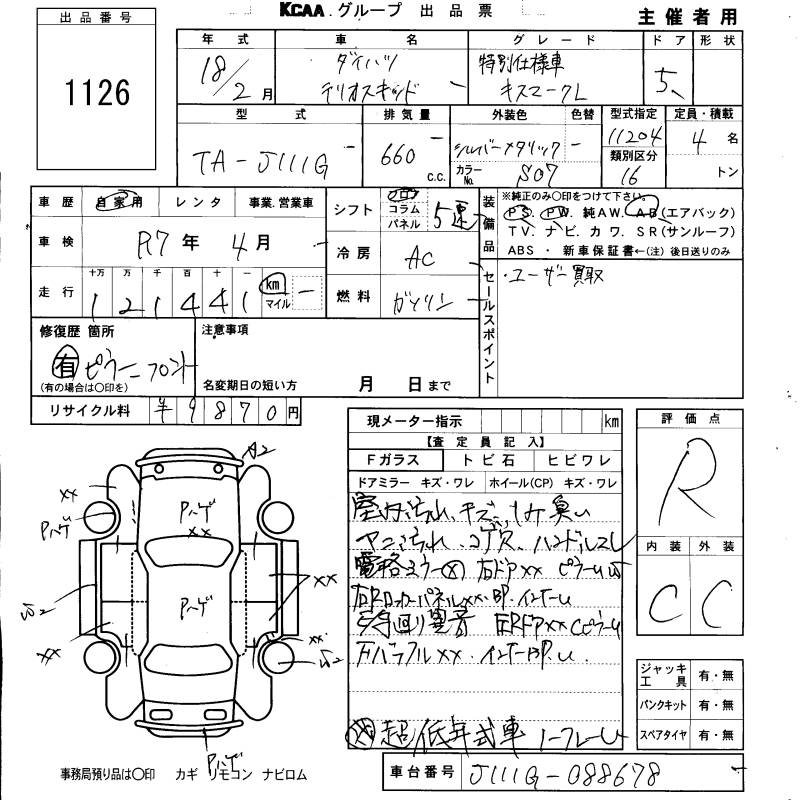 KCAA.グループ 出品票
主催者用
出品番号
1126
年式 車名 グレード ドア 形状
18/2月 ダイハツ テリオスキッド 特別仕様車 キスマークL 5
型式 排気量 外装色 色替 型式指定 定員・積載
TA-J111G 660 C.C. シルバーメタリック 11204 4名
カラーNo. S07 類別区分 16 トン
車歴 自家用 レンタ 事業.営業車
車検 R7年 4月
走行 十万 万 千 百 十 一
121441 km マイル
シフト フロア コラム パネル 5速
冷房 AC
燃料 ガソリン
装備品 ※純正のみ〇印をつけて下さい。
PS. PW. 純AW. AB(エアバック)
TV. ナビ. カワ. SR(サンルーフ)
ABS ・ 新車保証書←(注) 後日送りのみ
セールスポイント
・ユーザー買取
修復歴 箇所
有 ピラー フロント
(有の場合は〇印を)
注意事項
名変期日の短い方 月 日まで
リサイクル料 ¥9870円
現メーター指示 km
【査定員記入】
Fガラス トビ石 ヒビワレ
ドアミラー キズ・ワレ ホイール(CP) キズ・ワレ
室内汚れ、キズ、シミ 臭い
ヤニ汚れ コゲ穴、ハンドルスレ
電格ミラー 右ドアXX
XX
超低年式車
評価点
R
内装 外装
C C
ジャッキ 工具 有・無
パンクキット 有・無
スペアタイヤ 有・無
A2
XX
Pハゲ
Pハゲ
XX
XX
Pハゲ
XX
XX
Pハゲ
事務局預り品は〇印 カギ リモコン ナビロム
車台番号 J111G-088678